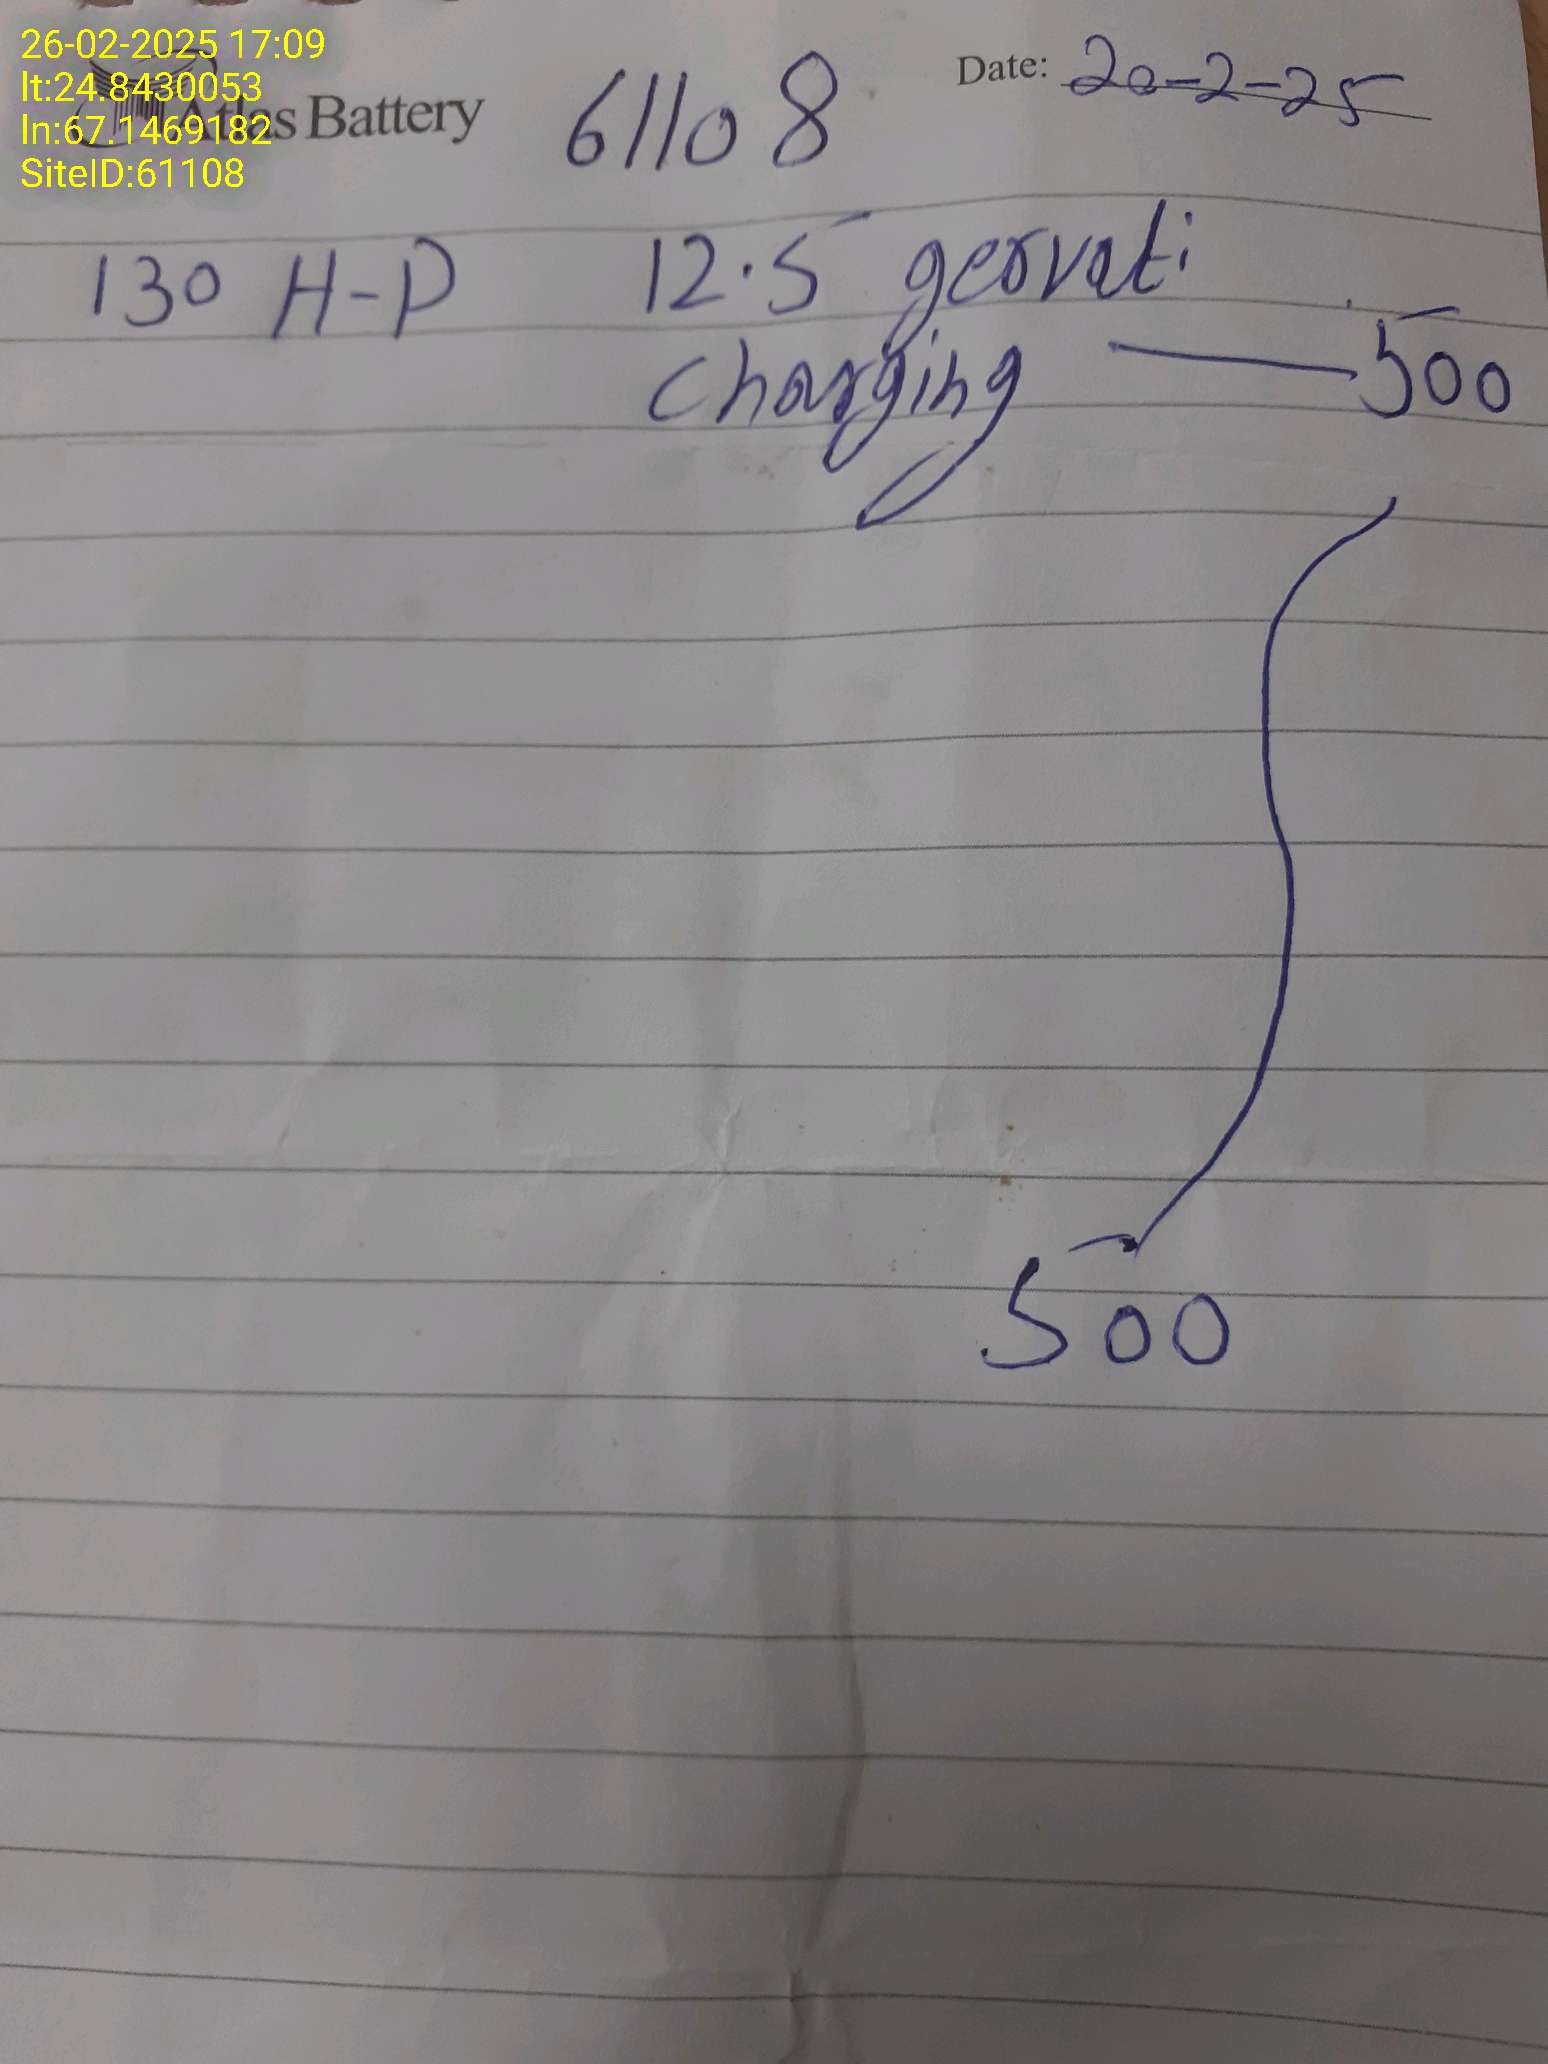 26-02-2025 17:09
lt:24.8430053
ln:67.1469182
SiteID:61108
Atlas Battery 61108 Date: 20-2-25
130 H-P 12.5 gervati
charging — 500
500